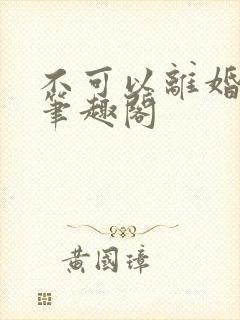 不可以離婚
筆趣閣
黃國璋